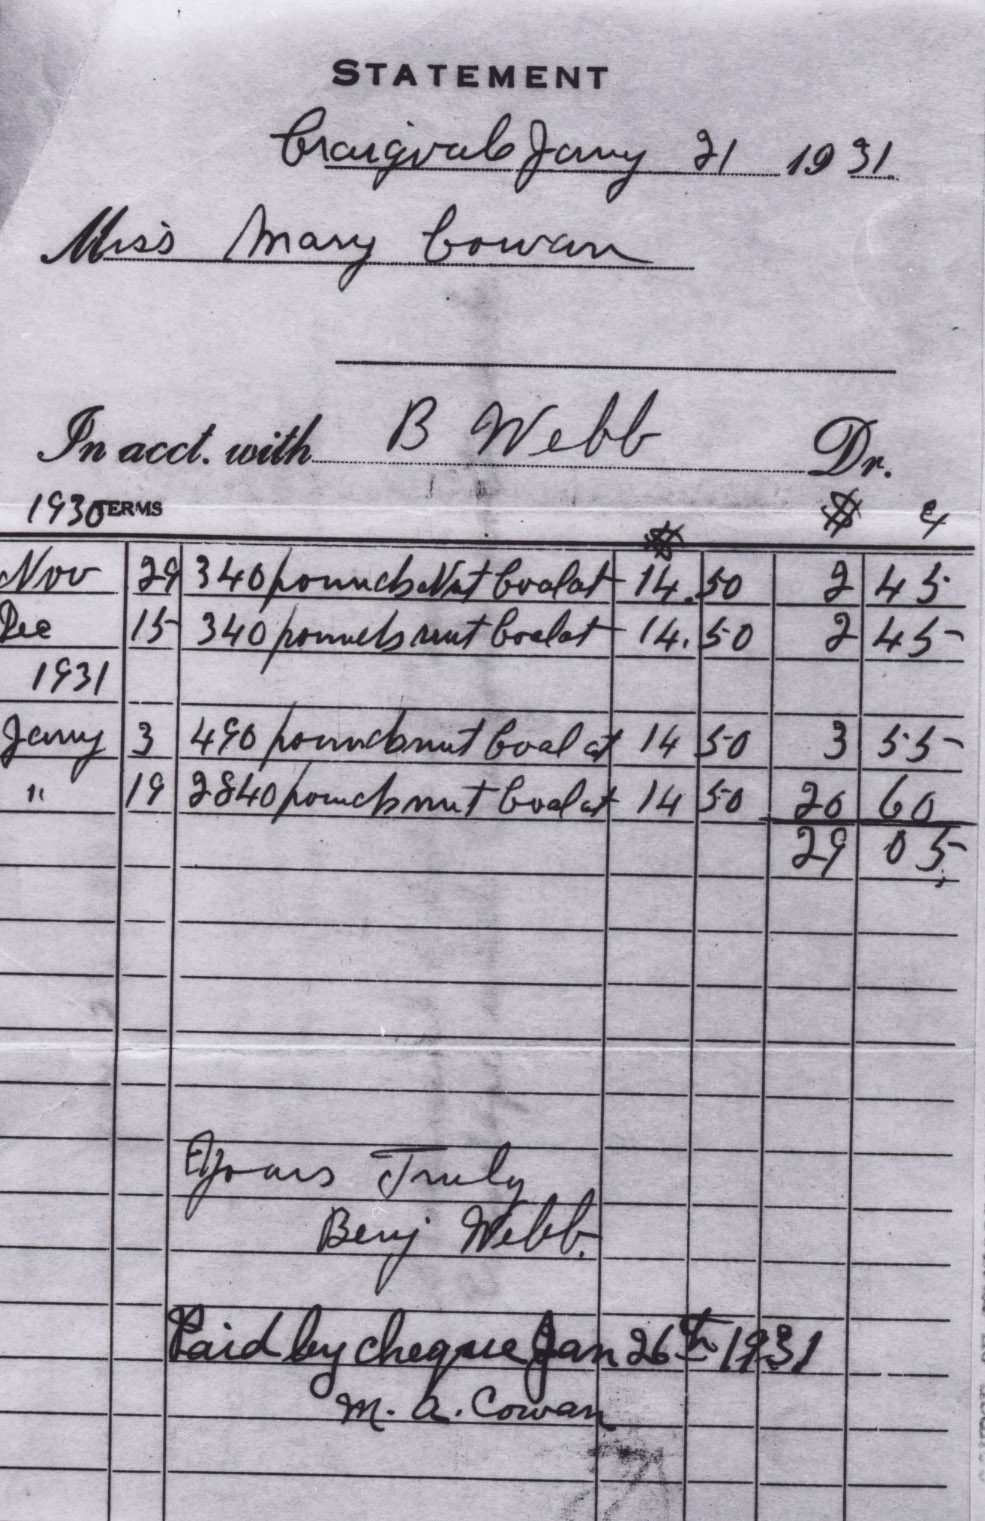 STATEMENT
Craigvale Jany 21 1931
Miss Mary Cowan
In acct. with B Webb Dr.
1930 TERMS $ $ ¢
Nov 29 340 pounds Nut Coal at 14.50 2 45
Dec 15 340 pounds nut Coal at 14.50 2 45
1931
Jany 3 490 pounds nut Coal at 14 50 3 55
" 19 2840 pounds nut Coal at 14 50 20 60
29 05
Yours Truly
Benj Webb.
Paid by cheque Jan 26th 1931
M. A. Cowan